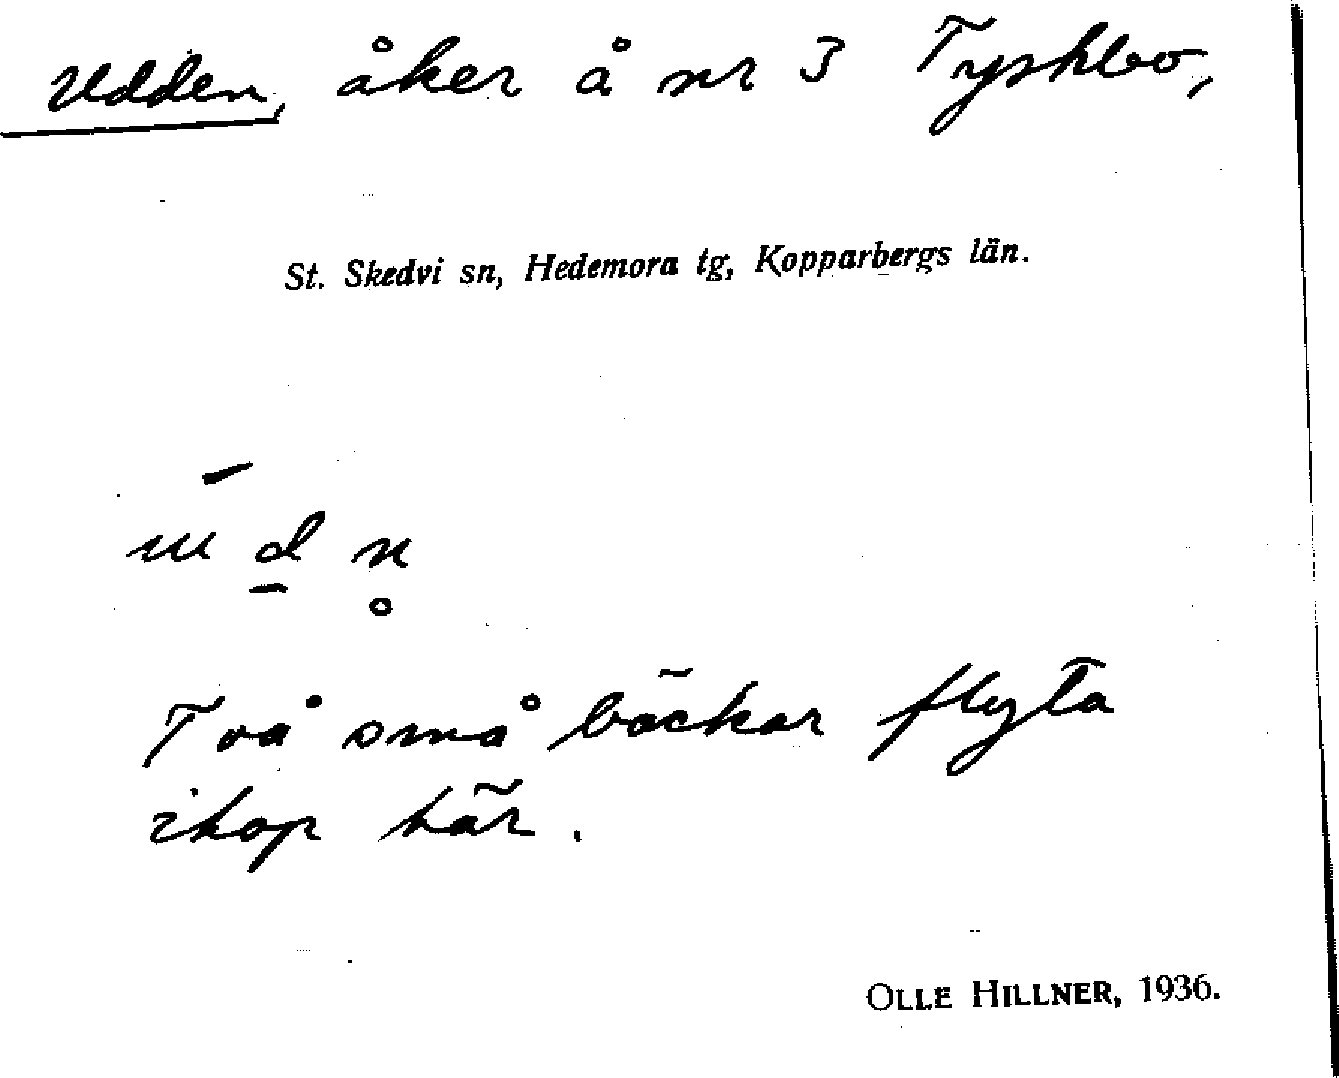 Udden, åker å nr 3 Tyskbo,
St. Skedvi sn, Hedemora tg, Kopparbergs län.
Två små bäckar flyta
ihop här.
OLLE HILLNER, 1936.